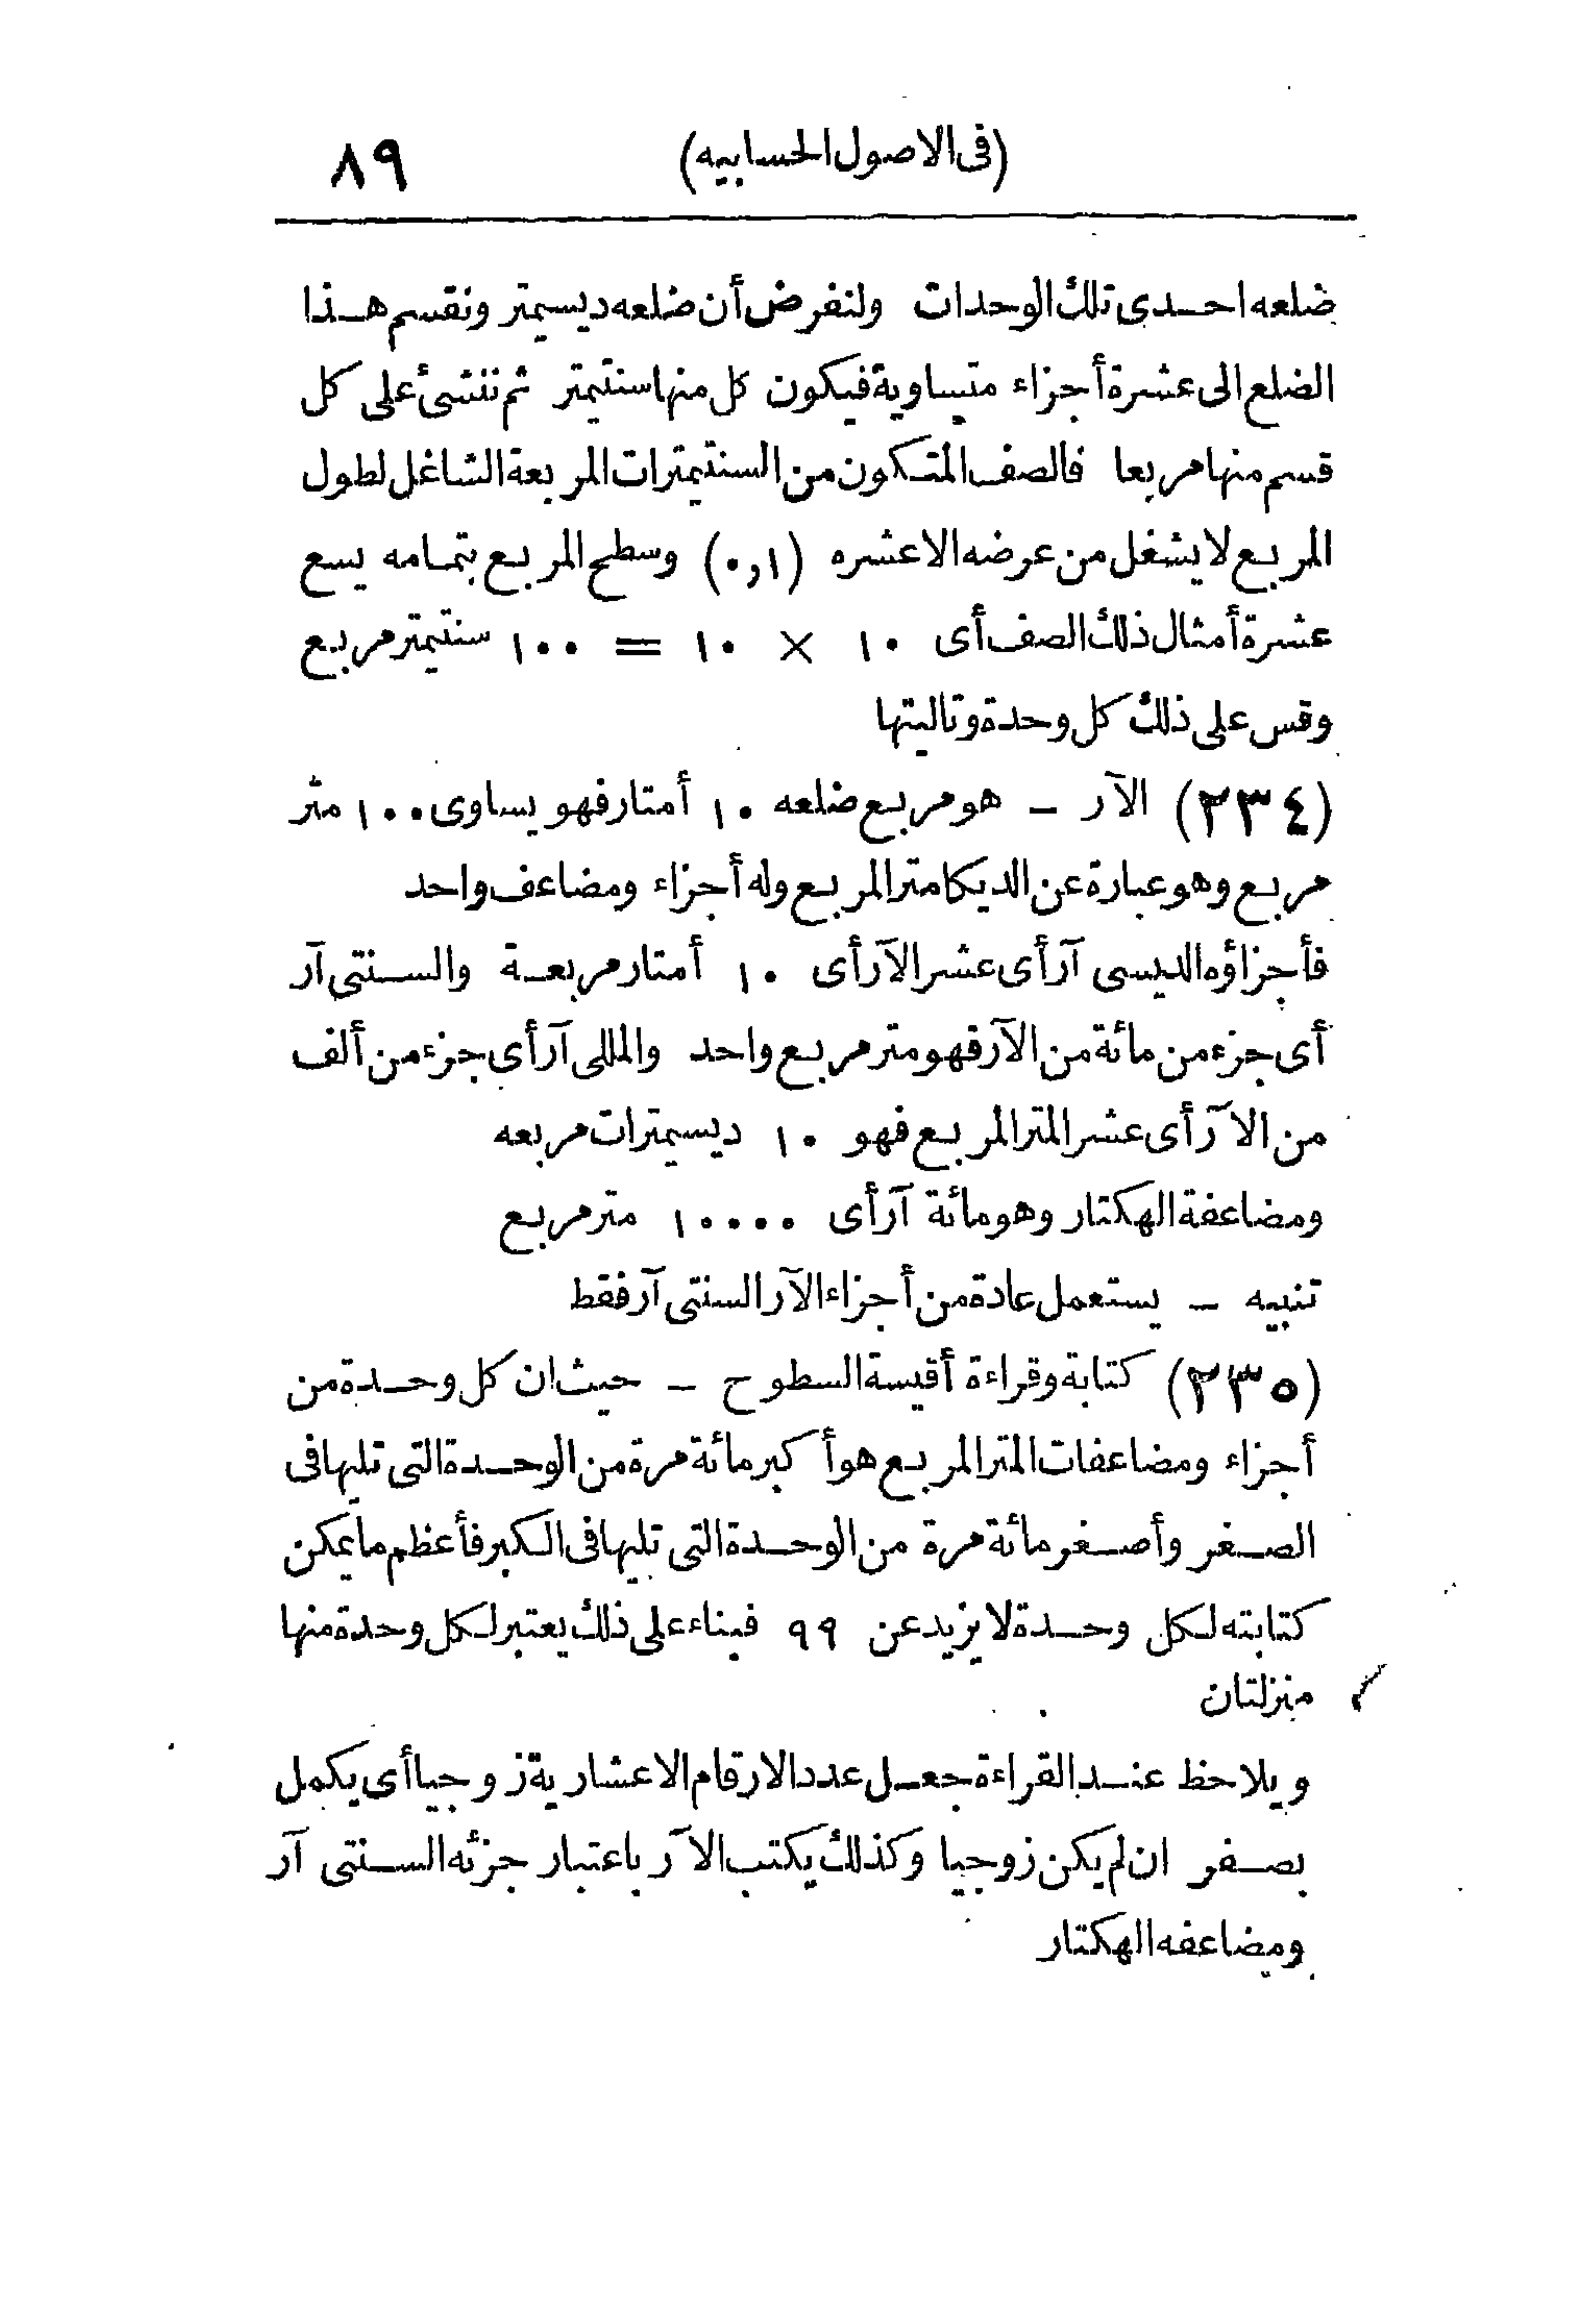 (فى الاصول الحسابيه) ٨٩
ضلعه احدى تلك الوحدات ولنفرض أن ضلعه ديسيمتر ونقسم هذا
الضلع الى عشرة أجزاء متساوية فيكون كل منها سنتيمتر ثم ننشئ على كل
قسم منها مربعا فالصف المتكون من السنتيمترات المربعة الشاغل لطول
المربع لا يشغل من عرضه الا عشره (٠,١) وسطح المربع بتمامه يسع
عشرة أمثال ذلك الصف أى ١٠ × ١٠ = ١٠٠ سنتيمتر مربع
وقس على ذلك كل وحدة وتاليتها
(٢٣٤) الآر - هو مربع ضلعه ١٠ أمتار فهو يساوى ١٠٠ متر
مربع وهو عبارة عن الديكامتر المربع وله أجزاء ومضاعف واحد
فأجزاؤه الديسى آر أى عشر الآر أى ١٠ أمتار مربعة والسنتى آر
أى جزء من مائة من الآر فهو متر مربع واحد والمللى آر أى جزء من ألف
من الآر أى عشر المتر المربع فهو ١٠ ديسيمترات مربعه
ومضاعفة الهكتار وهو مائة آر أى ١٠٠٠٠ متر مربع
تنبيه - يستعمل عادة من أجزاء الآر السنتى آر فقط
(٢٣٥) كتابة وقراءة أقيسة السطوح - حيث ان كل وحدة من
أجزاء ومضاعفات المتر المربع هو أكبر مائة مرة من الوحدة التى تليها فى
الصغر وأصغر مائة مرة من الوحدة التى تليها فى الكبر فأعظم ما يمكن
كتابته لكل وحدة لا يزيد عن ٩٩ فبناء على ذلك يعتبر لكل وحدة منها
منزلتان
ويلاحظ عند القراءة جعل عدد الارقام الاعشارية زوجيا أى يكمل
بصفر ان لم يكن زوجيا وكذلك يكتب الآر باعتبار جزئه السنتى آر
ومضاعفه الهكتار